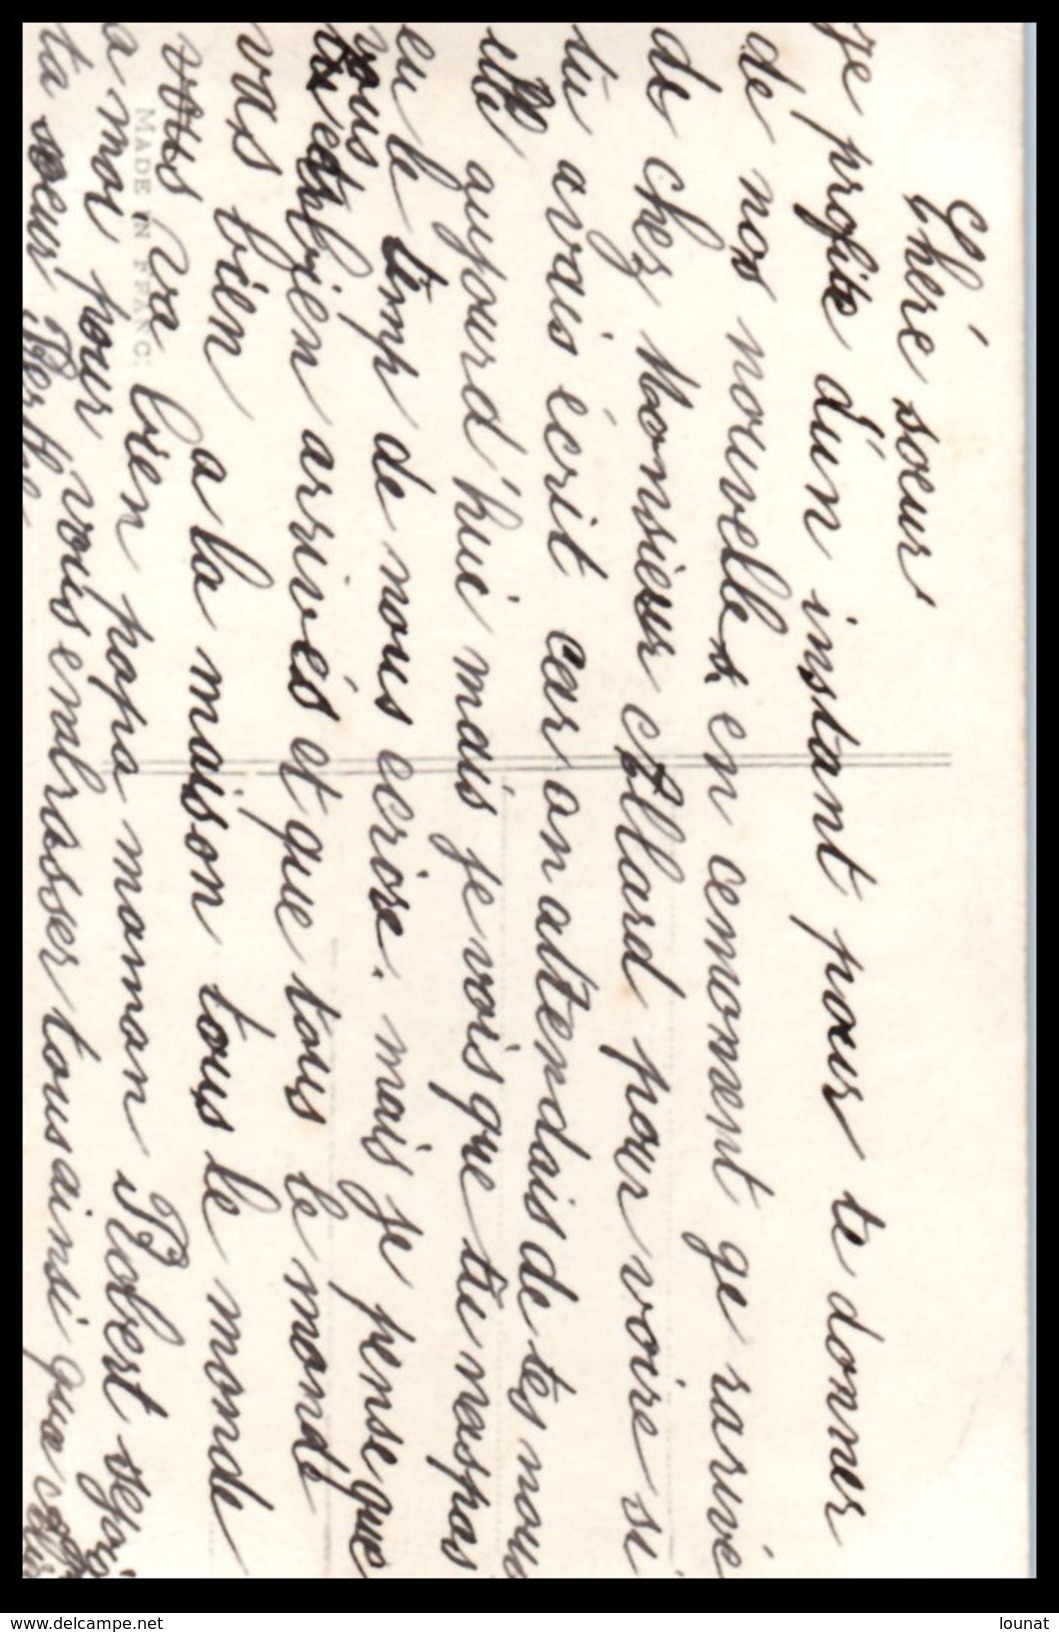 Chère soeur
je profite d'un instant pour te donner
de nos nouvelles en cemoment ge rarivé
de chez Monsieur Allard pour voire si
tu avais écrit car on attendais de tes nou
elle aujourd'hui mais je vois que tu naspas
eu le temp de nous ecrire. mais je pense que
vous
et bien arrivés et que tous le monde
vas bien a la maison tous le monde
vous bien popa moman Robert
a moi pour vous embrasser tous ainsi que
ta soeur
MADE IN FRANC
www.delcampe.net
lounat